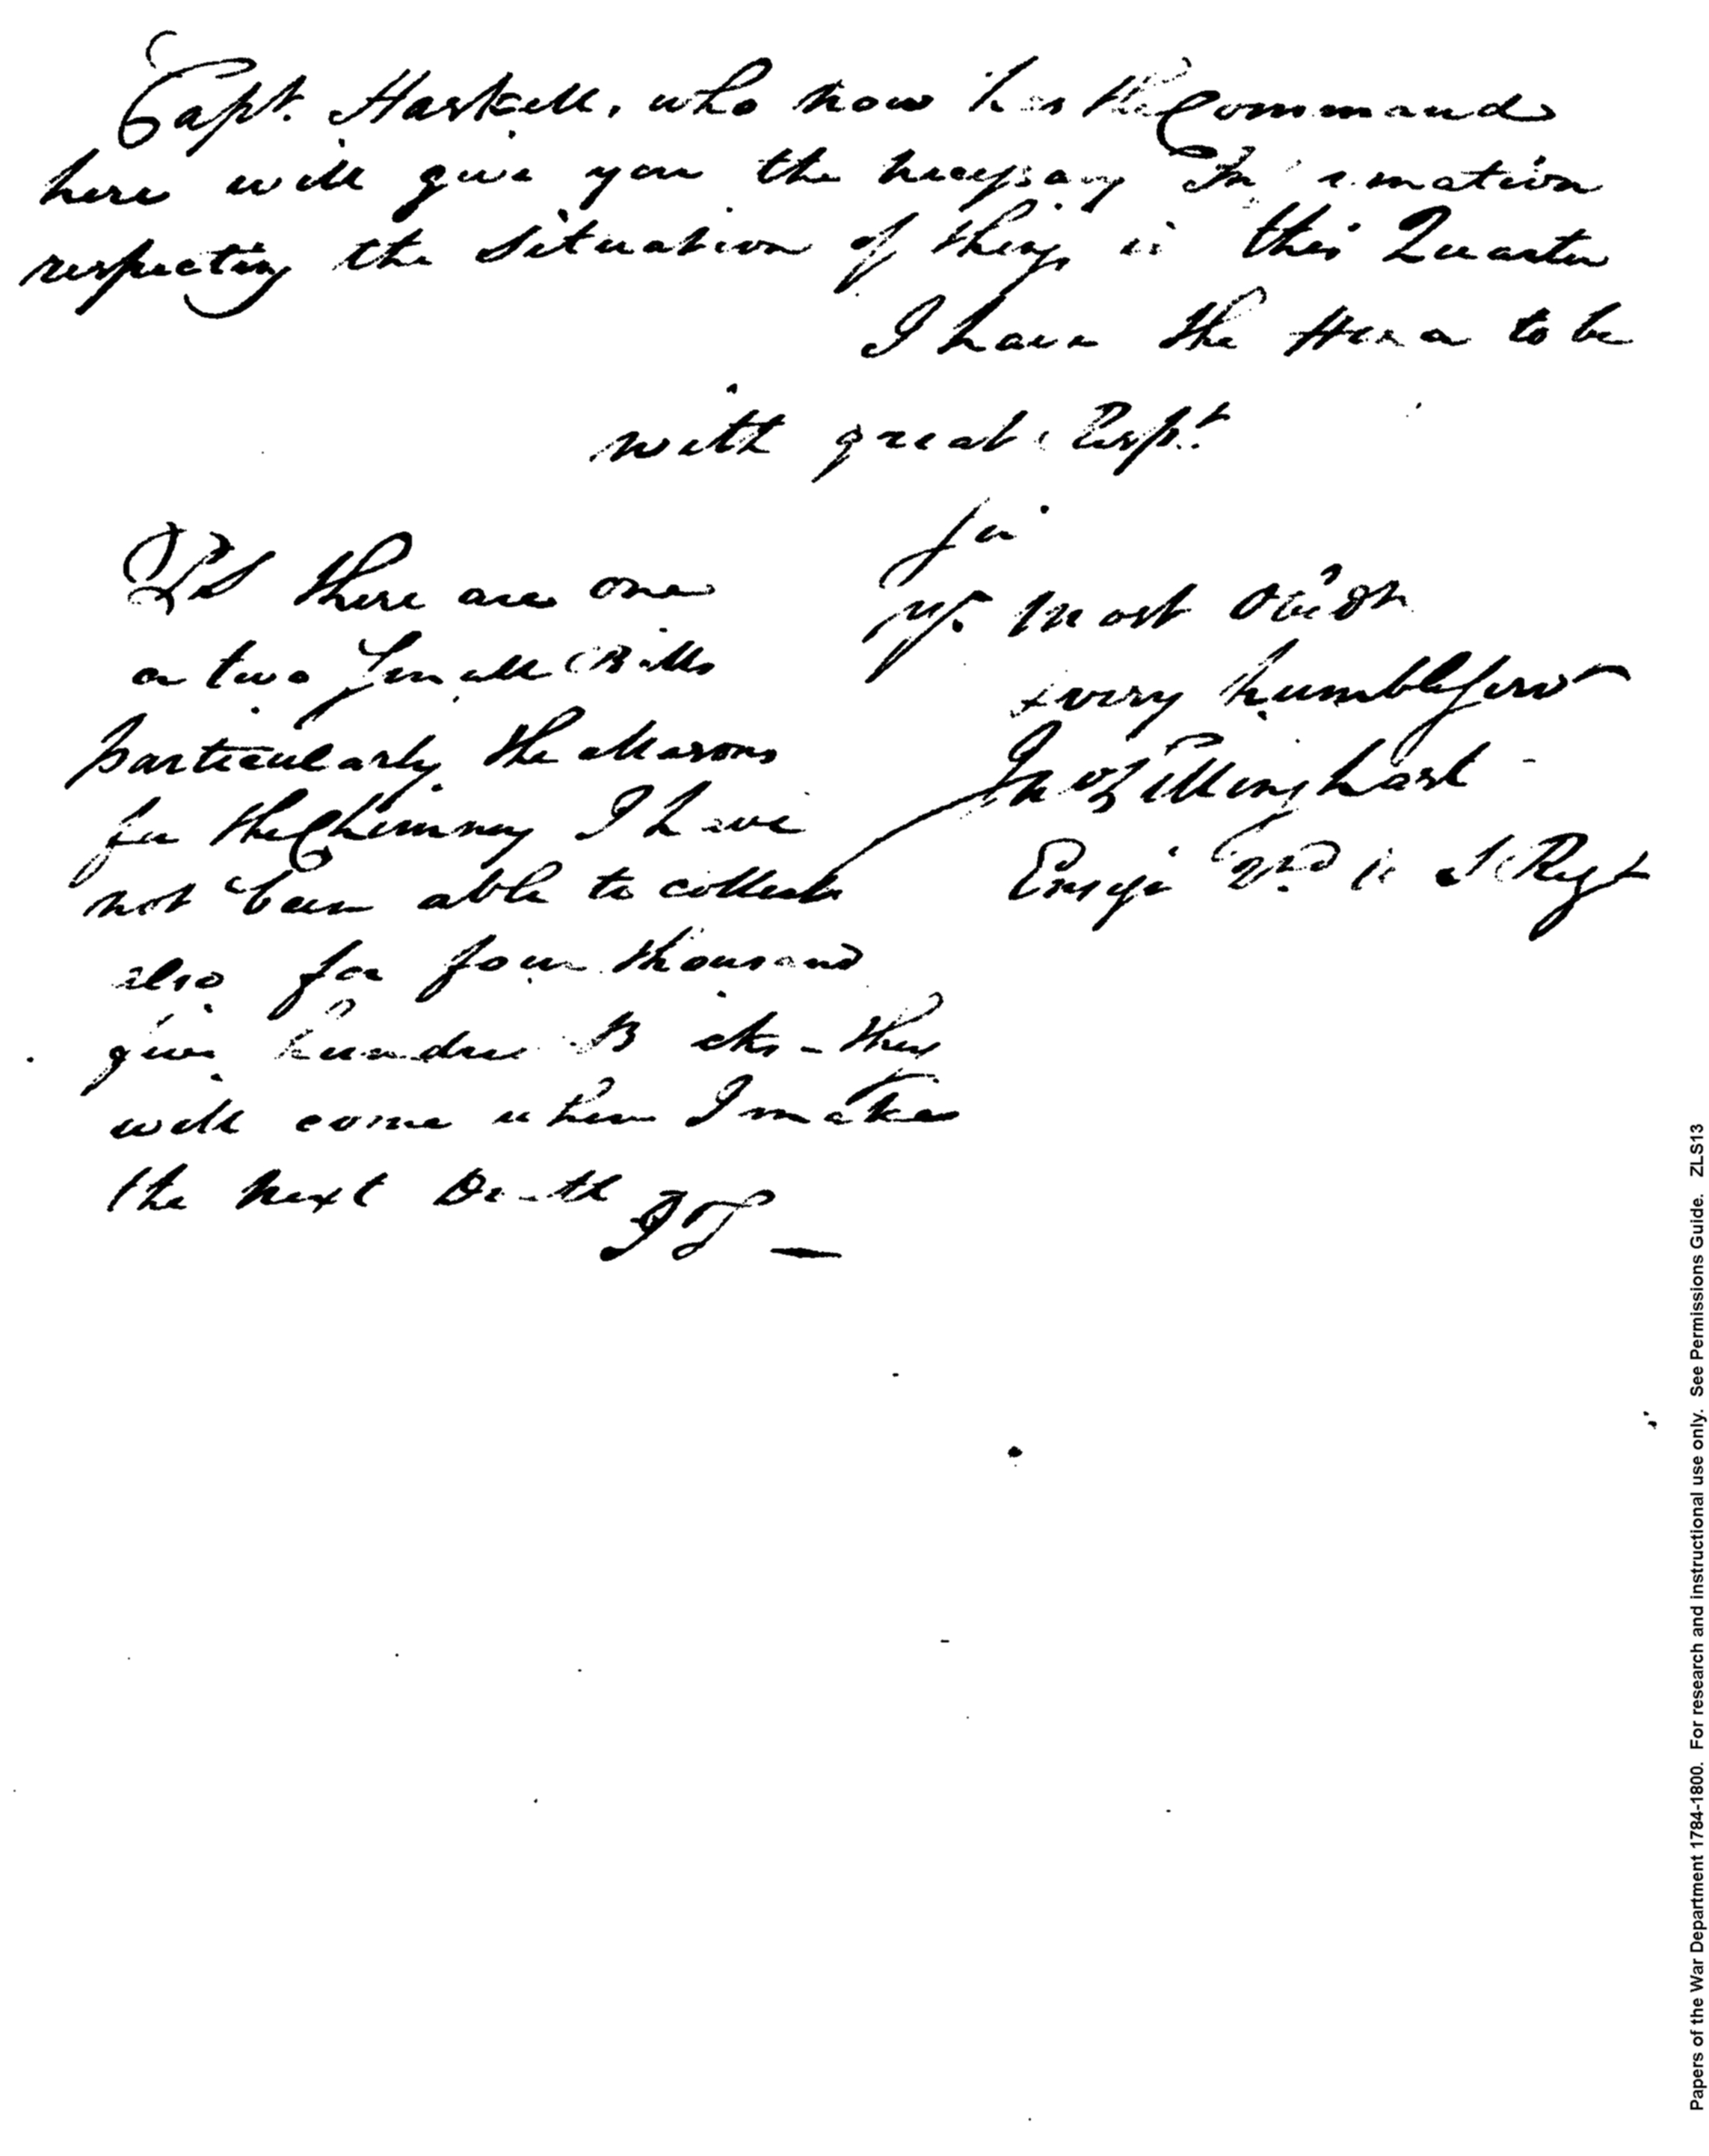 Capt. Haskell, who now has the Command
here will give you the necessary Information
respecting the Situation of things in this Quarter
I have the Honor to be
with great Respt.
Sir
yr. most Obedt
& very humble Serv
Jn Tillinghast
Ensign 2nd U S Regt
PS there are one
or two Small Bills
particularly the Masons
for the Chimney I have
not been able to collect
also for four thousand
five hundred Bricks - they
will come when I make
the next
JT —
Papers of the War Department 1784-1800. For research and instructional use only. See Permissions Guide. ZLS13